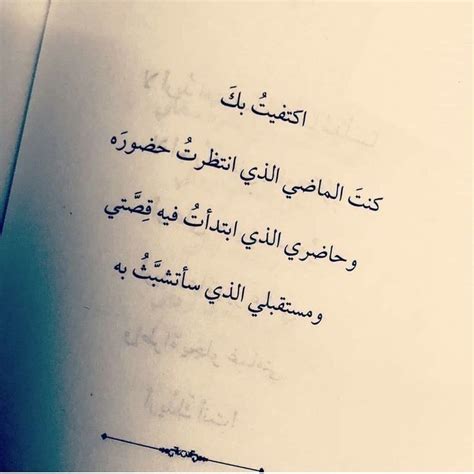 اكتفيتُ بكَ
كنتَ الماضي الذي انتظرتُ حضورَه
وحاضري الذي ابتدأتُ فيه قِصَّتي
ومستقبلي الذي سأتشبَّثُ به